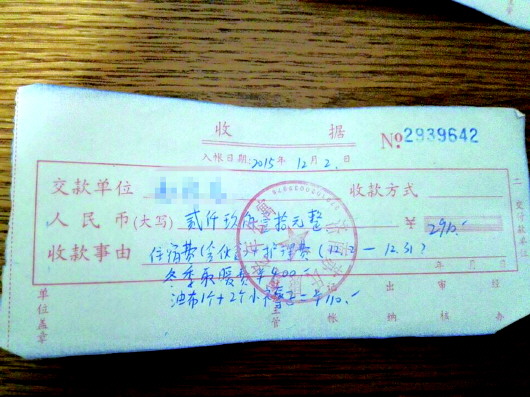 收 据
№2939642
入帐日期:2015年12月2日
交款单位 收款方式
人民币(大写) 贰仟玖佰壹拾元整 ¥2910.-
收款事由 住宿费(含伙食)护理费(12.2—12.31)
冬季取暖费 900.-
油布1个+2个小 110.-
年 月 日
单位盖章 管 帐 出纳 审核 经办
二 交款单位